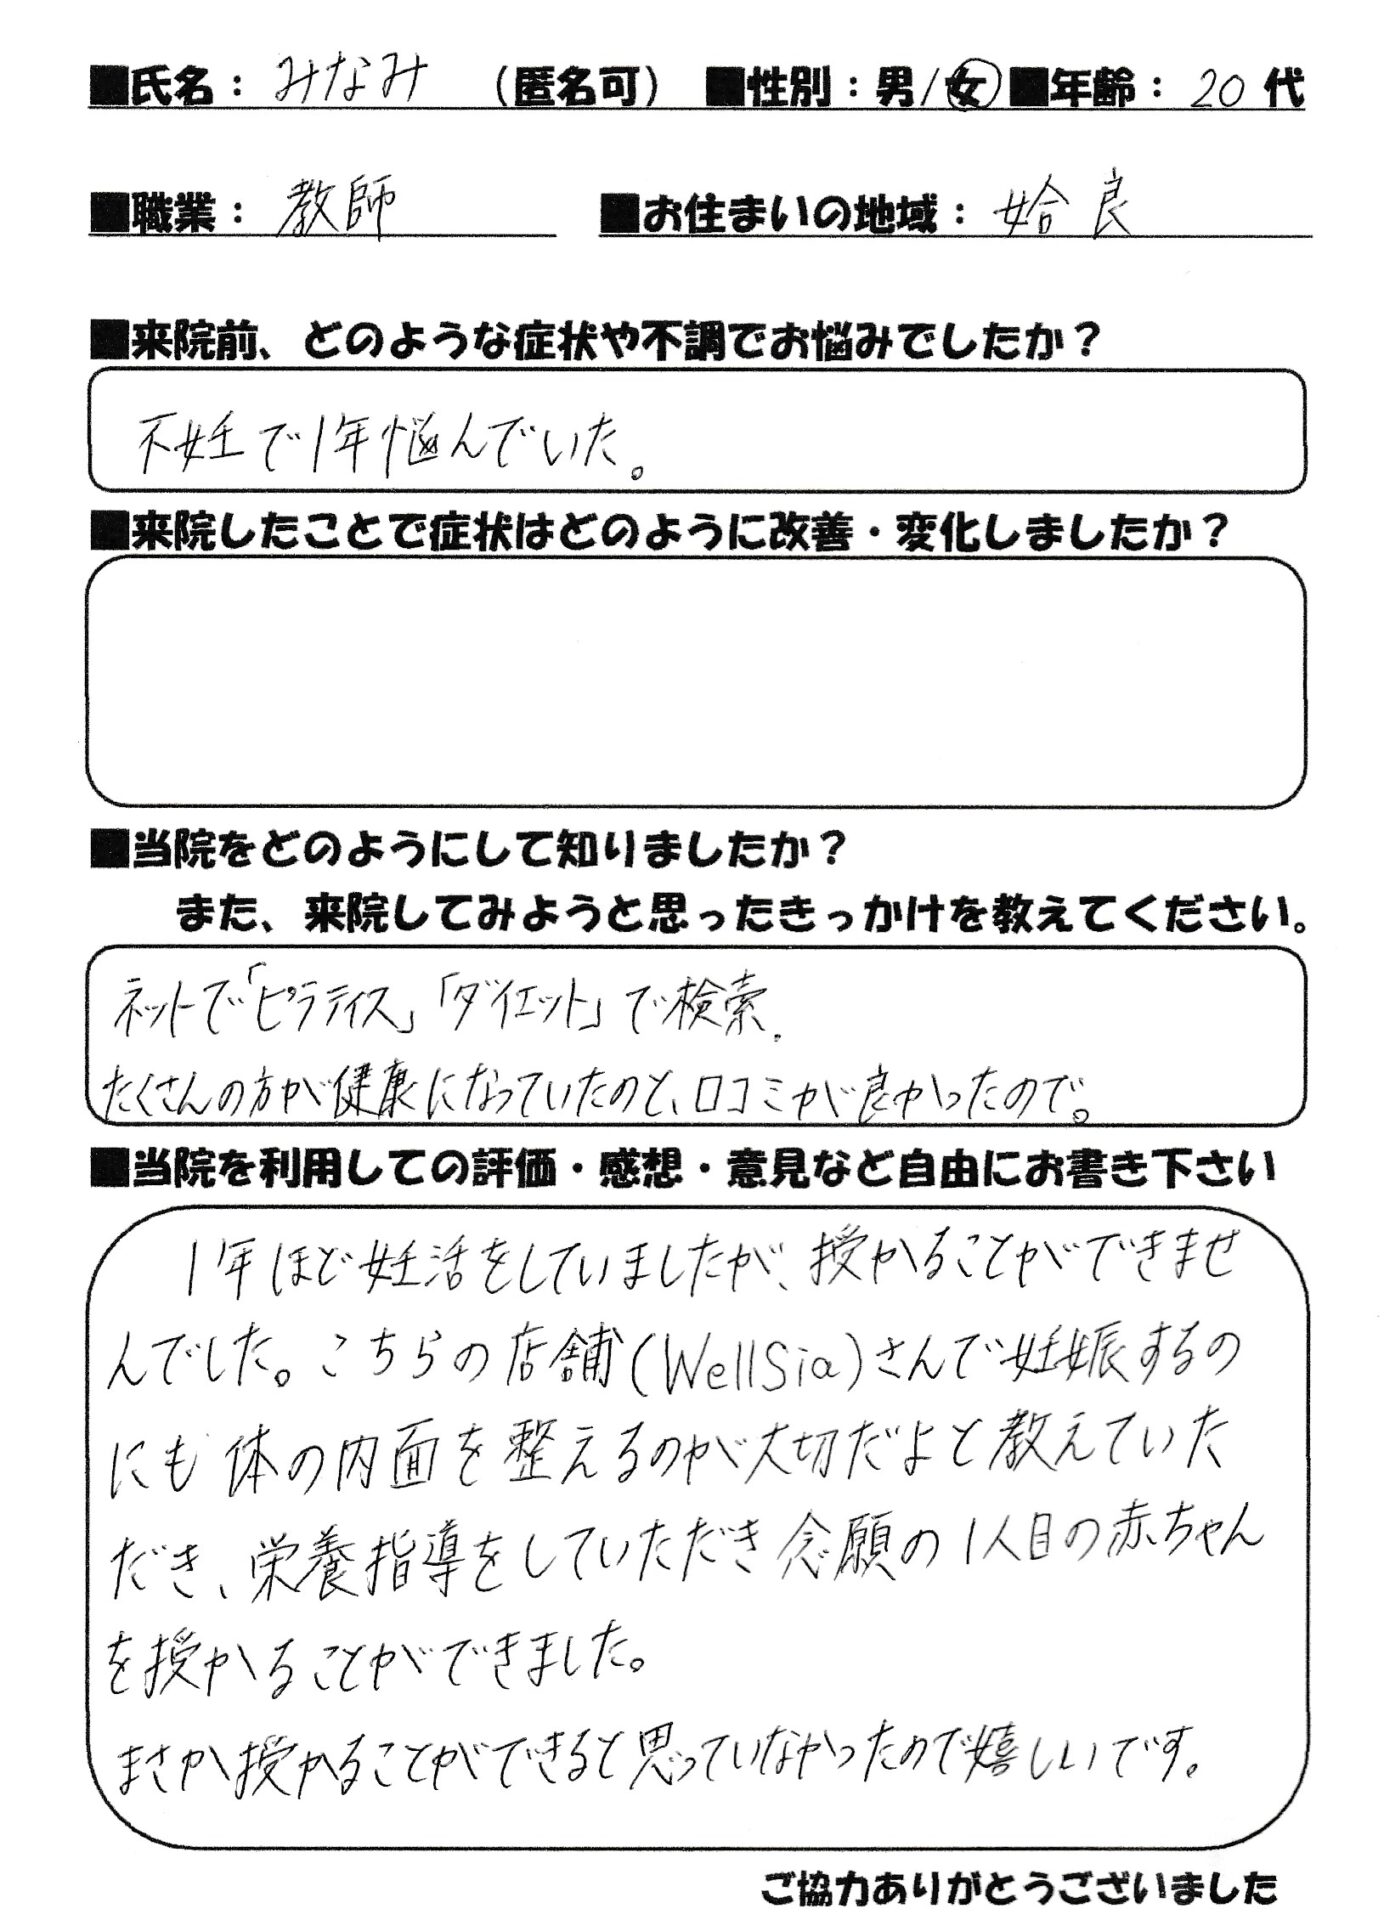 ■氏名：みなみ （匿名可） ■性別：男/女 ■年齢：20代
■職業：教師 ■お住まいの地域：姶良
■来院前、どのような症状や不調でお悩みでしたか？
不妊で1年悩んでいた。
■来院したことで症状はどのように改善・変化しましたか？
■当院をどのようにして知りましたか？
また、来院してみようと思ったきっかけを教えてください。
ネットで「ピラティス」「ダイエット」で検索.
たくさんの方が健康になっていたのと、口コミが良かったので。
■当院を利用しての評価・感想・意見など自由にお書き下さい
1年ほど妊活をしていましたが、授かることができませ
んでした。こちらの店舗(WellSia)さんで妊娠するの
にも体の内面を整えるのが大切だよと教えていた
だき、栄養指導をしていただき念願の1人目の赤ちゃん
を授かることができました。
まさか授かることができると思っていなかったので嬉しいです。
ご協力ありがとうございました